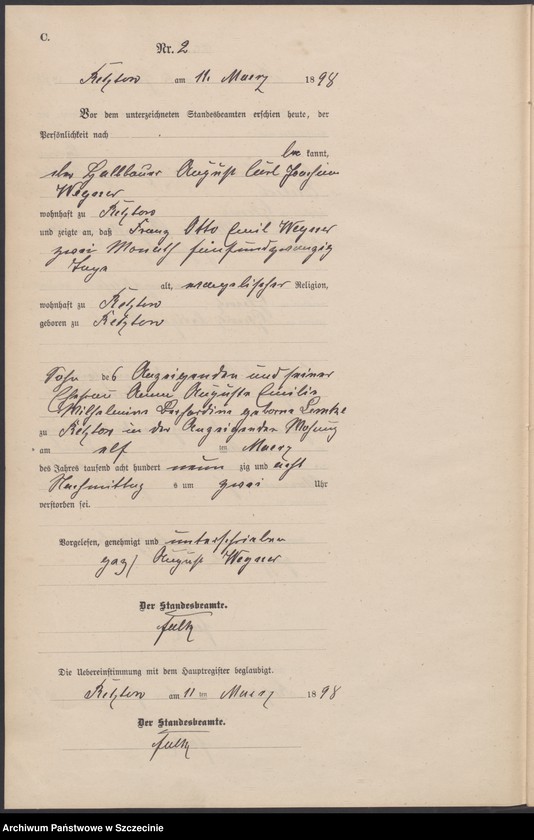 C.
Nr. 2
Ketzton am 11. Maerz 1898
Vor dem unterzeichneten Standesbeamten erschien heute, der
Persönlichkeit nach
be kannt,
der August Carl Joachim
Wegner
wohnhaft zu Ketzton
und zeigte an, daß Franz Otto Emil Wegner
zwei Monath fünfundzwanzig
Tage
alt, evangelischer Religion,
wohnhaft zu Ketzton
geboren zu Ketzton
Sohn des Anzeigenden und seiner
Ehefrau Anna Auguste Emilie
Wilhelmine geborne Lemke
zu Ketzton in der Anzeigenden Wohnung
am elf ten Maerz
des Jahres tausend acht hundert neun zig und acht
Nachmittag s um zwei Uhr
verstorben sei.
Vorgelesen, genehmigt und unterschrieben
gez/ August Wegner
Der Standesbeamte.
Falk
Die Uebereinstimmung mit dem Hauptregister beglaubigt.
Ketzton am 11 ten Maerz 1898
Der Standesbeamte.
Falk
Archiwum Państwowe w Szczecinie